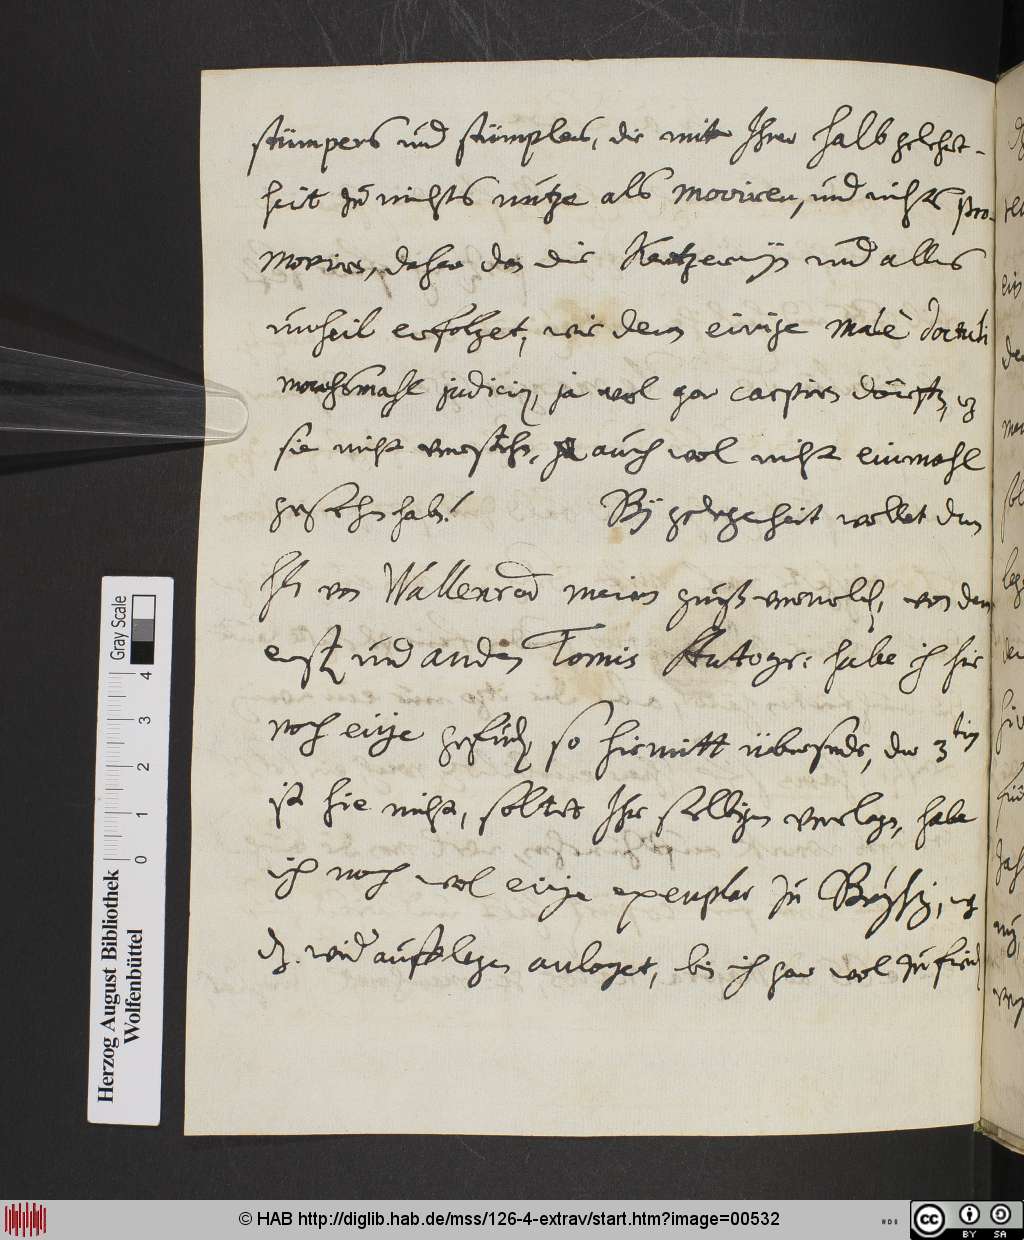 stümpers und stümpler, die mitt Ihrer halb gelehrt-
heit zu nichts nütze als moviren, und nichts pro-
moviren, daher dan die Ketzereyen und alles
unheil erfolget, wie denn einige malè doctuli
manchsmahl judiciren, ja wol gar carpiren dörften,
sie nicht verstehn, auch wol nicht einmahl
gesehn haben! Bey gelegenheit wollet dem
Hn von Wallenrod meinen gruß vermelden, von dem
ersten und andern Tomis Autogr: habe ich hie
noch einge gefunden so hiemitt übersende, der 3ten
ist hie nicht, soltes Ihr selbigen verlegen, habe
ich noch wol einge exemplar zu
dz. wider aufflegen anlanget, bin ich gar wol zufrieden
Herzog August Bibliothek
Wolfenbüttel
Gray Scale
0 1 2 3 4
© HAB http://diglib.hab.de/mss/126-4-extrav/start.htm?image=00532
cc BY SA